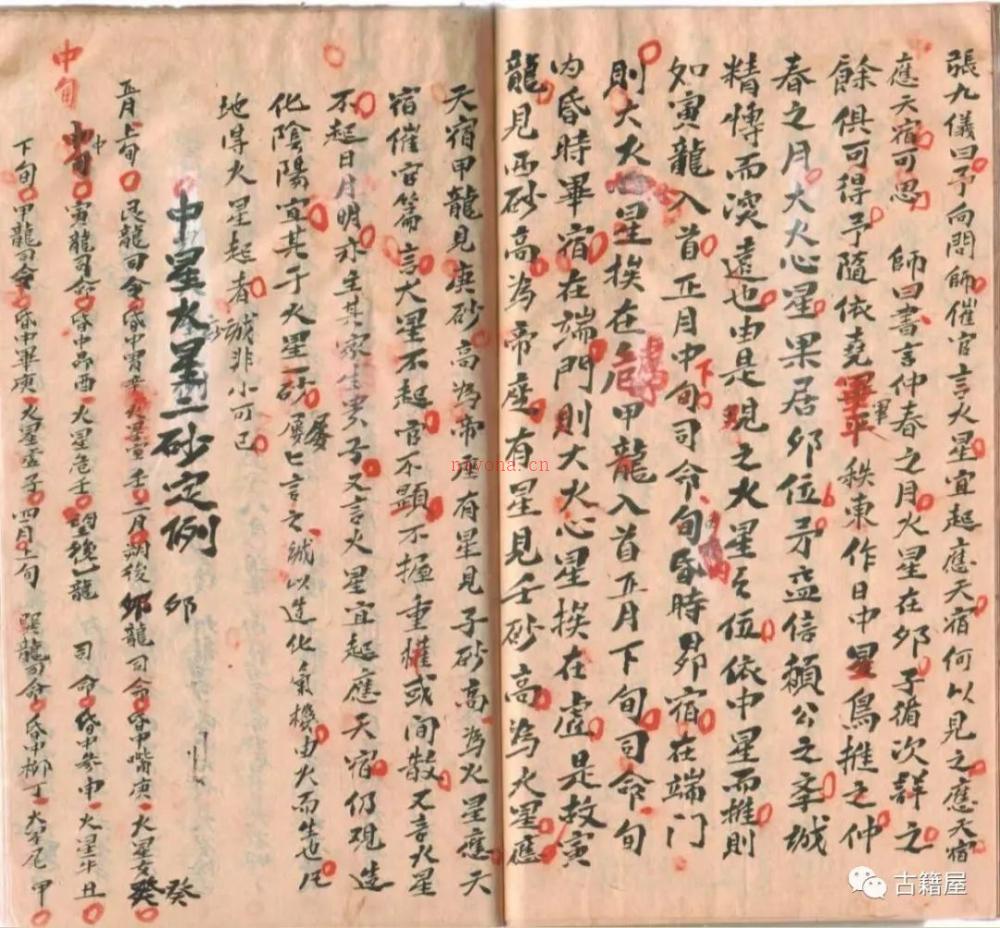 張九儀曰予向問師催官言火星宜起應天宿何以見之應天宿
應天宿可思　師曰書言仲春之月火星在夘子循次詳之
餘俱可得予隨依堯 平秩東作日中星鳥推之仲
春之月大火心星果居夘位矛益信賴公之
精慱而深遠也由是見之火星之位依中星而推則
如寅龍入首正月中旬司令旬昏時昴宿在端門
則大火心星挨在危甲龍入首正月下旬司令旬
内昏時畢宿在端門則大火心星挨在虚是故寅
龍見丙砂高為帝座有星見壬砂高為火星應
天宿甲龍見庚砂高為帝座有星見子砂高為火星應天
宿催官篇言火星不起官不顯不握重權或间散又言火星
不起日月明亦主其家生貴子又言火星宜起應天宿仍观造
化陰陽宜其于火星一砂屡七言之誠以造化氣機由火而生也凡
地得火星起者誠非小可已
中星火星二砂定例
五月上旬艮龍司令昏中胃辛火星室壬二月朔後夘龍司令昏中嘴庚火星亥癸
中旬寅龍司令昏中昴酉火星危壬 龍司令昏中参申火星斗丑
下旬甲龍司令昏中畢庚火星虚子四月上旬巽龍司令昏中柳丁火星尾甲
中旬
nayona.cn
古籍屋